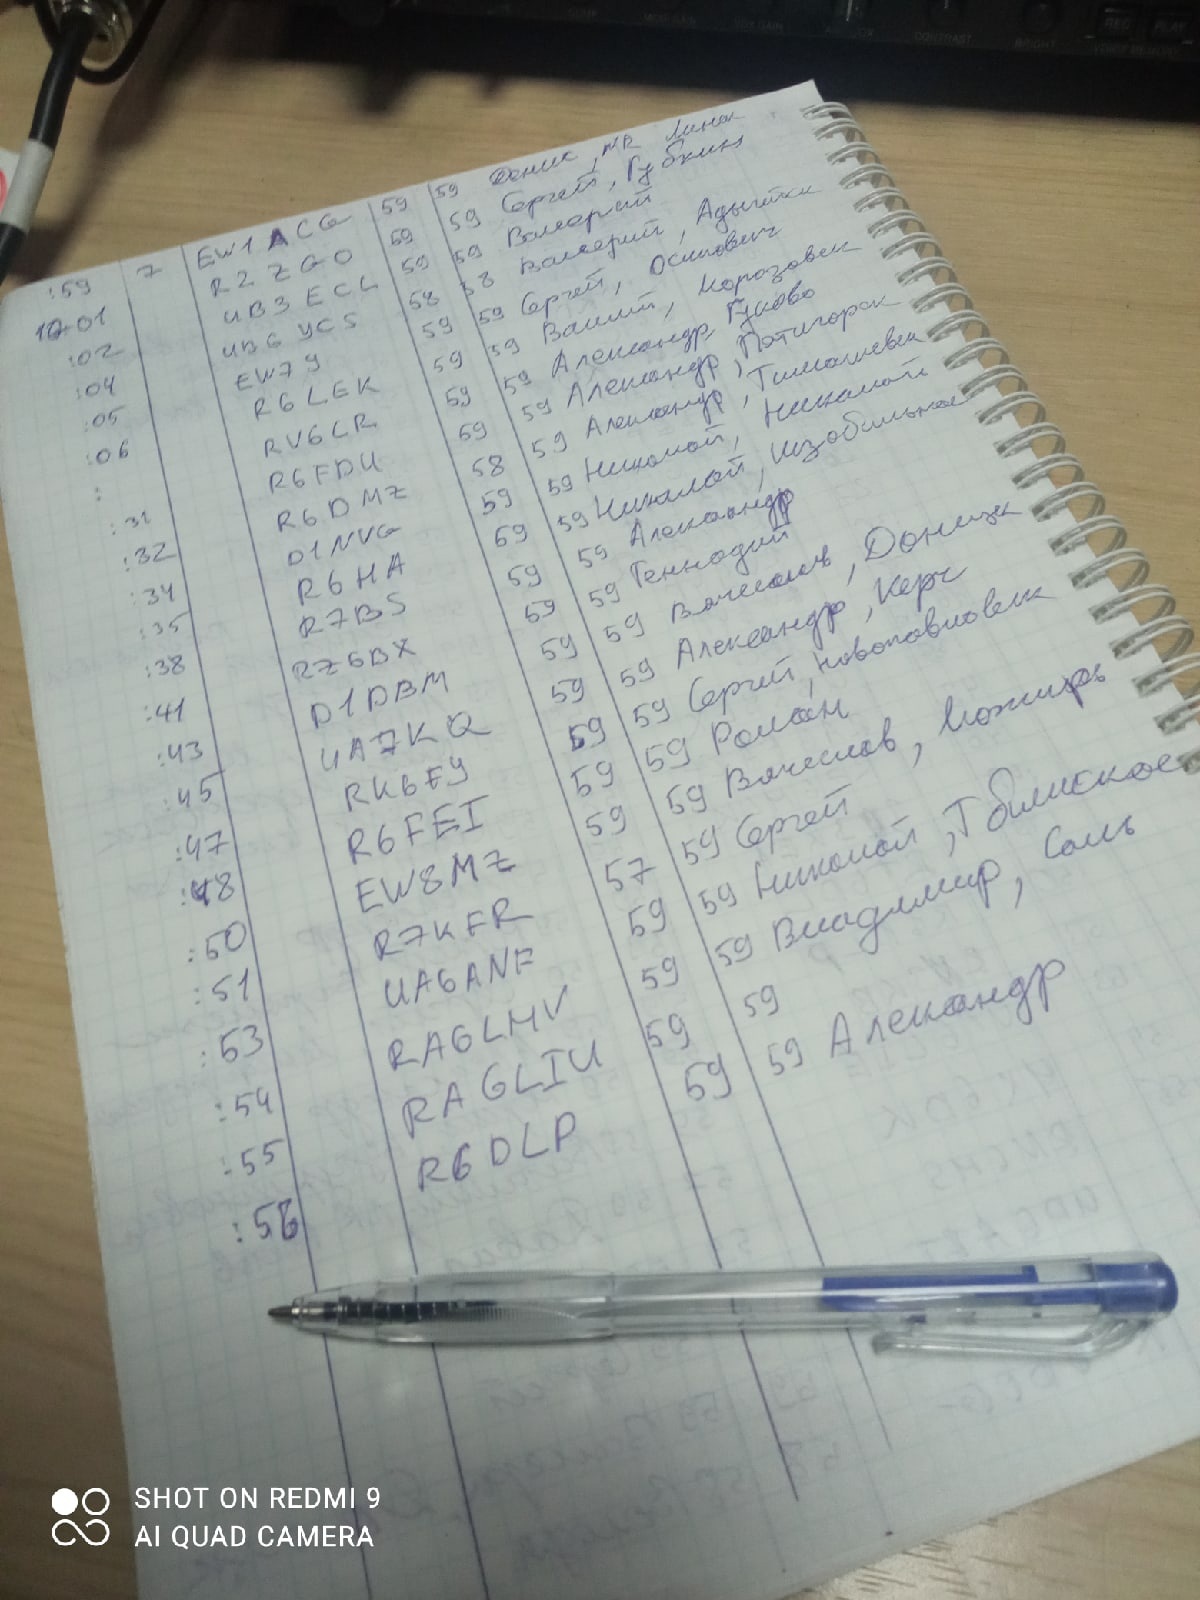 CONTRAST
BRIGHT
REC PLAY
:59 7 EW1ACG 59 59 Денис, Минск
10:01 R2ZGO 59 59 Сергей, Губкин
:02 UB3ECL 59 59 Валерий
:04 UB6YCS 58 58 Валерий, Адыгейск
:05 EW7Y 59 59 Сергей, Осипович
:06 R6LEK 59 59 Василий, Морозовск
: RV6LR 59 59 Александр, Гуково
:31 R6FDU 59 59 Александр, Пятигорск
:32 R6DMZ 58 59 Александр, Тимашевск
:34 D1NVG 59 59 Николай, Николай
:35 R6HA 59 59 Николай, Изобильное
:38 R7BS 59 59 Александр
:41 RZ6BX 59 59 Геннадий
:43 D1DBM 59 59 Вячеслав, Донецк
:45 UA7KQ 59 59 Александр, Керч
:47 RK6FY 59 59 Сергей, Новопавловск
:48 R6FEI 59 59 Роман
:50 EW8MZ 59 59 Вячеслав, Мозырь
:51 R7KFR 57 59 Сергей
:53 UA6ANF 59 59 Николай, Тбилисское
:54 RA6LMV 59 59 Владимир, Саль
:55 RA6LIU 59 59
:56 R6DLP 59 59 Александр
SHOT ON REDMI 9
AI QUAD CAMERA